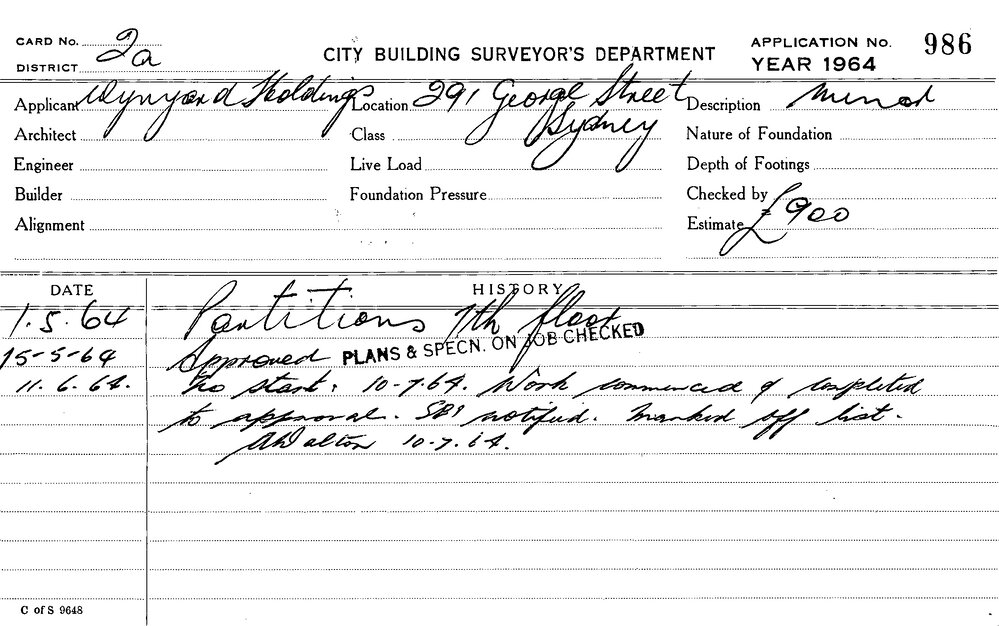 CARD No. 2a
DISTRICT
CITY BUILDING SURVEYOR'S DEPARTMENT
APPLICATION No. 986
YEAR 1964
Applicant Wynyard Holdings Location 291 George Street Description Minor
Sydney
Architect Class Nature of Foundation
Engineer Live Load Depth of Footings
Builder Foundation Pressure Checked by
Alignment Estimate £900
DATE HISTORY
1.5.64 Partitions 7th floor
15-5-64 Approved PLANS & SPECN. ON JOB CHECKED
11.6.64. No start. 10-7.64. Work commenced & completed
to approval. notified. Marked off list.
AWalton 10.7.64.
C of S 9648